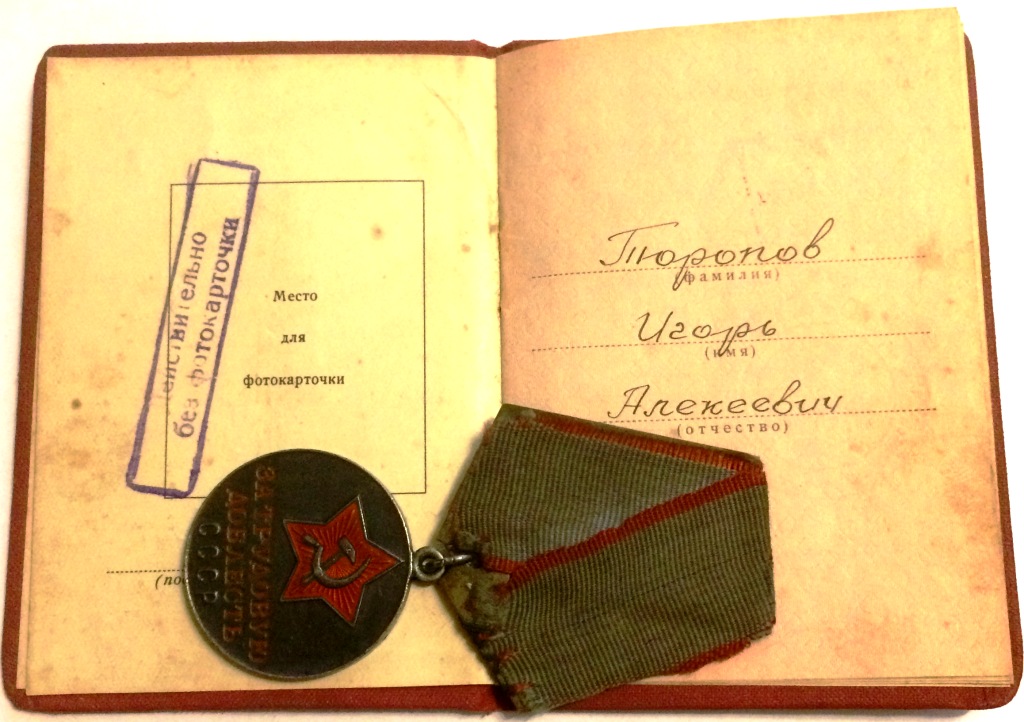 действительно
без фотокарточки
Место
для
фотокарточки
(по
ЗА ТРУДОВУЮ
ДОБЛЕСТЬ
СССР
Тюропов
(фамилия)
Игорь
(имя)
Алексеевич
(отчество)